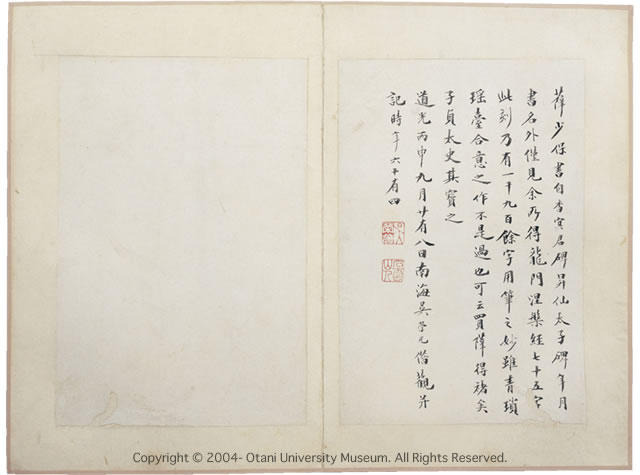 薛少保書自杳冥君碑昇仙太子碑年月
書名外僅見余所得龍門涅槃經七十五字
此刻乃有一千九百餘字用筆之妙雖青瑣
瑶臺合意之作不是過也可云買薛得褚矣
子貞太史其寶之
道光丙申九月廿有八日南海吳榮光借觀并
記時年六十有四
Copyright © 2004- Otani University Museum. All Rights Reserved.